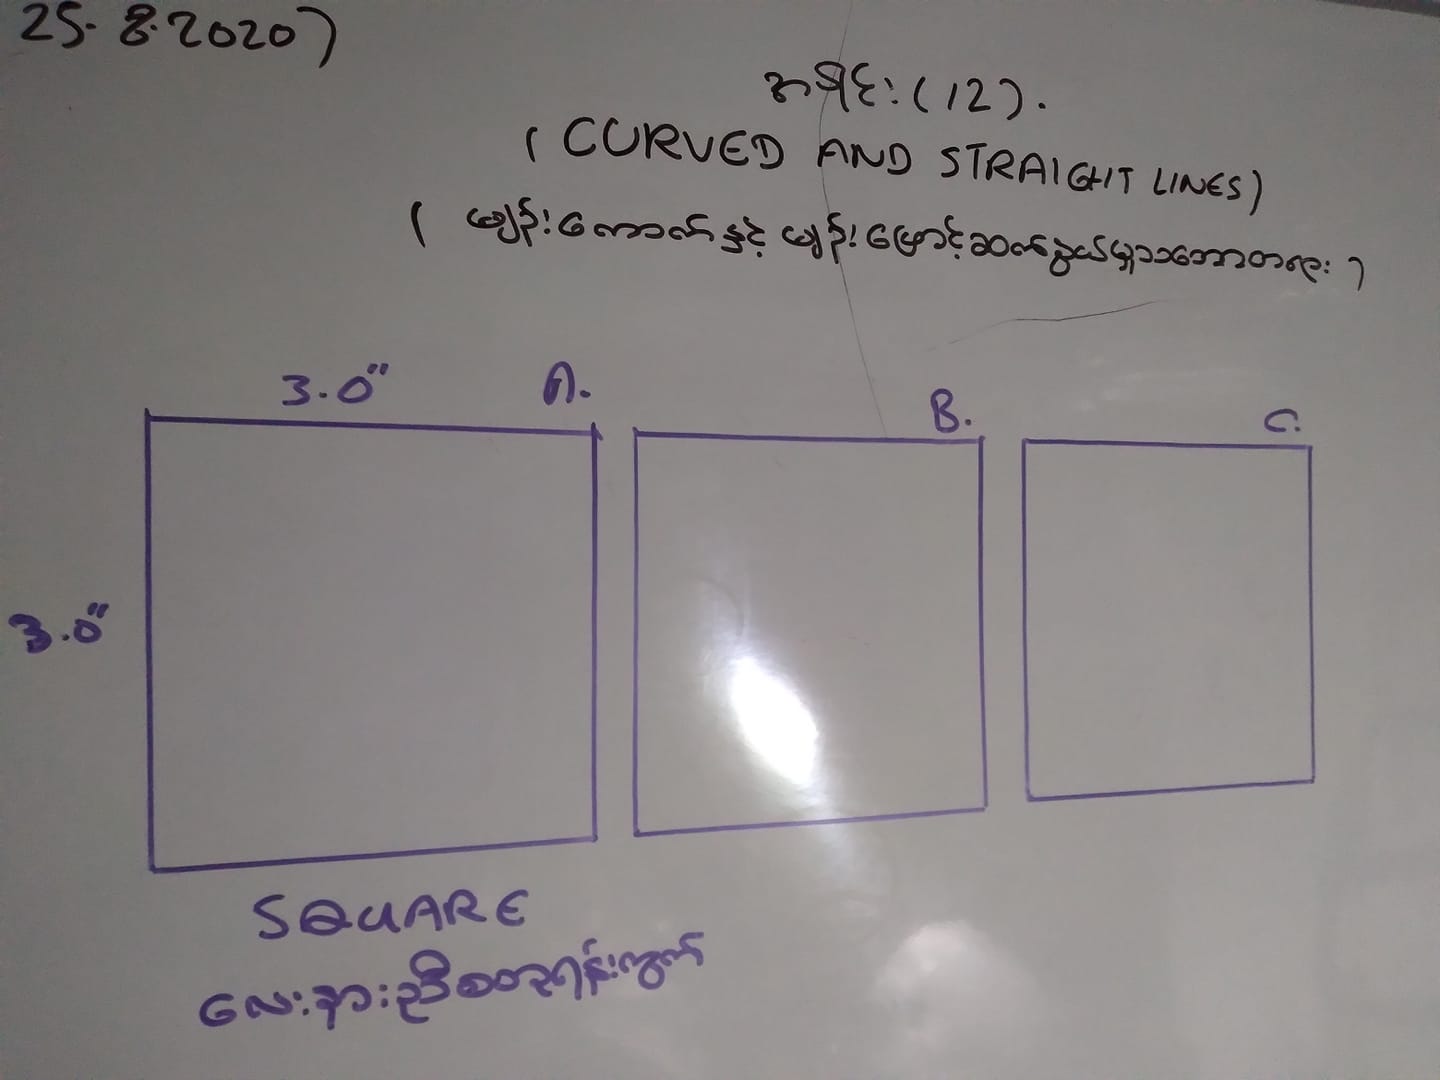 25.8.2020)
အပိုင်း(12).
(CURVED AND STRAIGHT LINES)
(မျဉ်းကောက်နှင့် မျဉ်းဖြောင့်ဆက်နွယ်မှုသဘောတရား)
3.0" A. B. C.
3.0"
SQUARE
လေးနားညီစတုရန်းကွက်